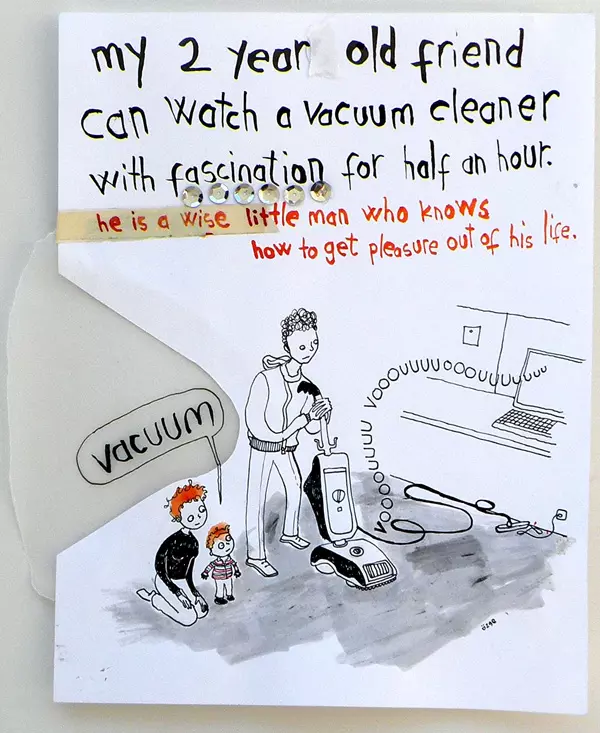 my 2 year old friend
can watch a vacuum cleaner
with fascination for half an hour.
he is a wise little man who knows
how to get pleasure out of his life.
vacuum